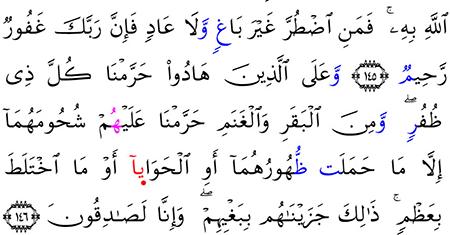 ٱللَّهِ بِهِۦۚ فَمَنِ ٱضْطُرَّ غَيْرَ بَاغٍ وَّلَا عَادٍ فَإِنَّ رَبَّكَ غَفُورٌ
رَّحِيمٌ ١٤٥ وَّعَلَى ٱلَّذِينَ هَادُوا۟ حَرَّمْنَا كُلَّ ذِى
ظُفُرٍۖ وَّمِنَ ٱلْبَقَرِ وَٱلْغَنَمِ حَرَّمْنَا عَلَيْهُمْ شُحُومَهُمَآ
إِلَّا مَا حَمَلَت ظُّهُورُهُمَآ أَوِ ٱلْحَوَايَآ أَوْ مَا ٱخْتَلَطَ
بِعَظْمٍۚ ذَٰلِكَ جَزَيْنَٰهُم بِبَغْيِهِمْۖ وَإِنَّا لَصَٰدِقُونَ ١٤٦